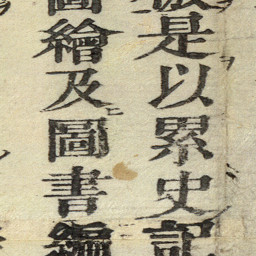 是以累史記
圖繪及圖書編